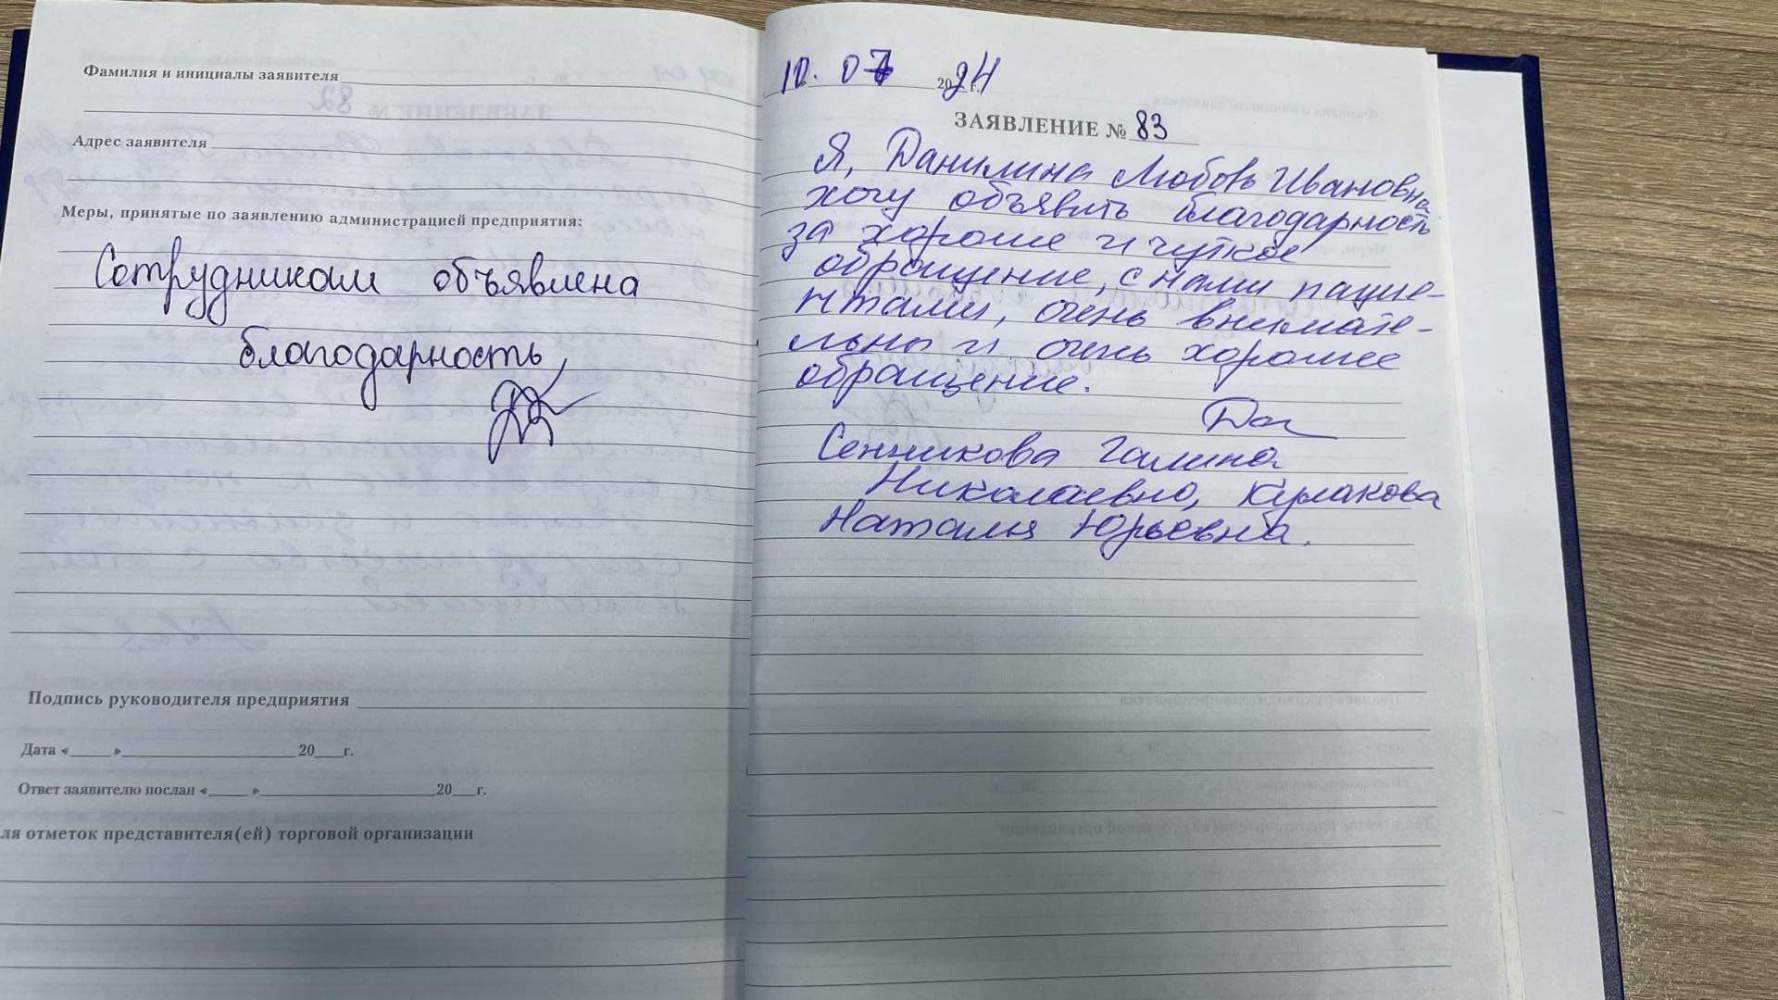 Фамилия и инициалы заявителя
Адрес заявителя
Меры, принятые по заявлению администрацией предприятия:
Сотрудникам объявлена
благодарность
Подпись руководителя предприятия
Дата « » 20 г.
Ответ заявителю послан « » 20 г.
ля отметок представителя(ей) торговой организации
10. 07 2024 г.
ЗАЯВЛЕНИЕ № 83
Я, Данилина Любовь Ивановна
хочу объявить благодарность
за хороше и чуткое
обращение, с нами пацие-
нтами, очень внимате-
льны и очень хорошее
обращение.
Дан
Сенникова Галина
Николаевно, Кулакова
Наталия Юрьевна.